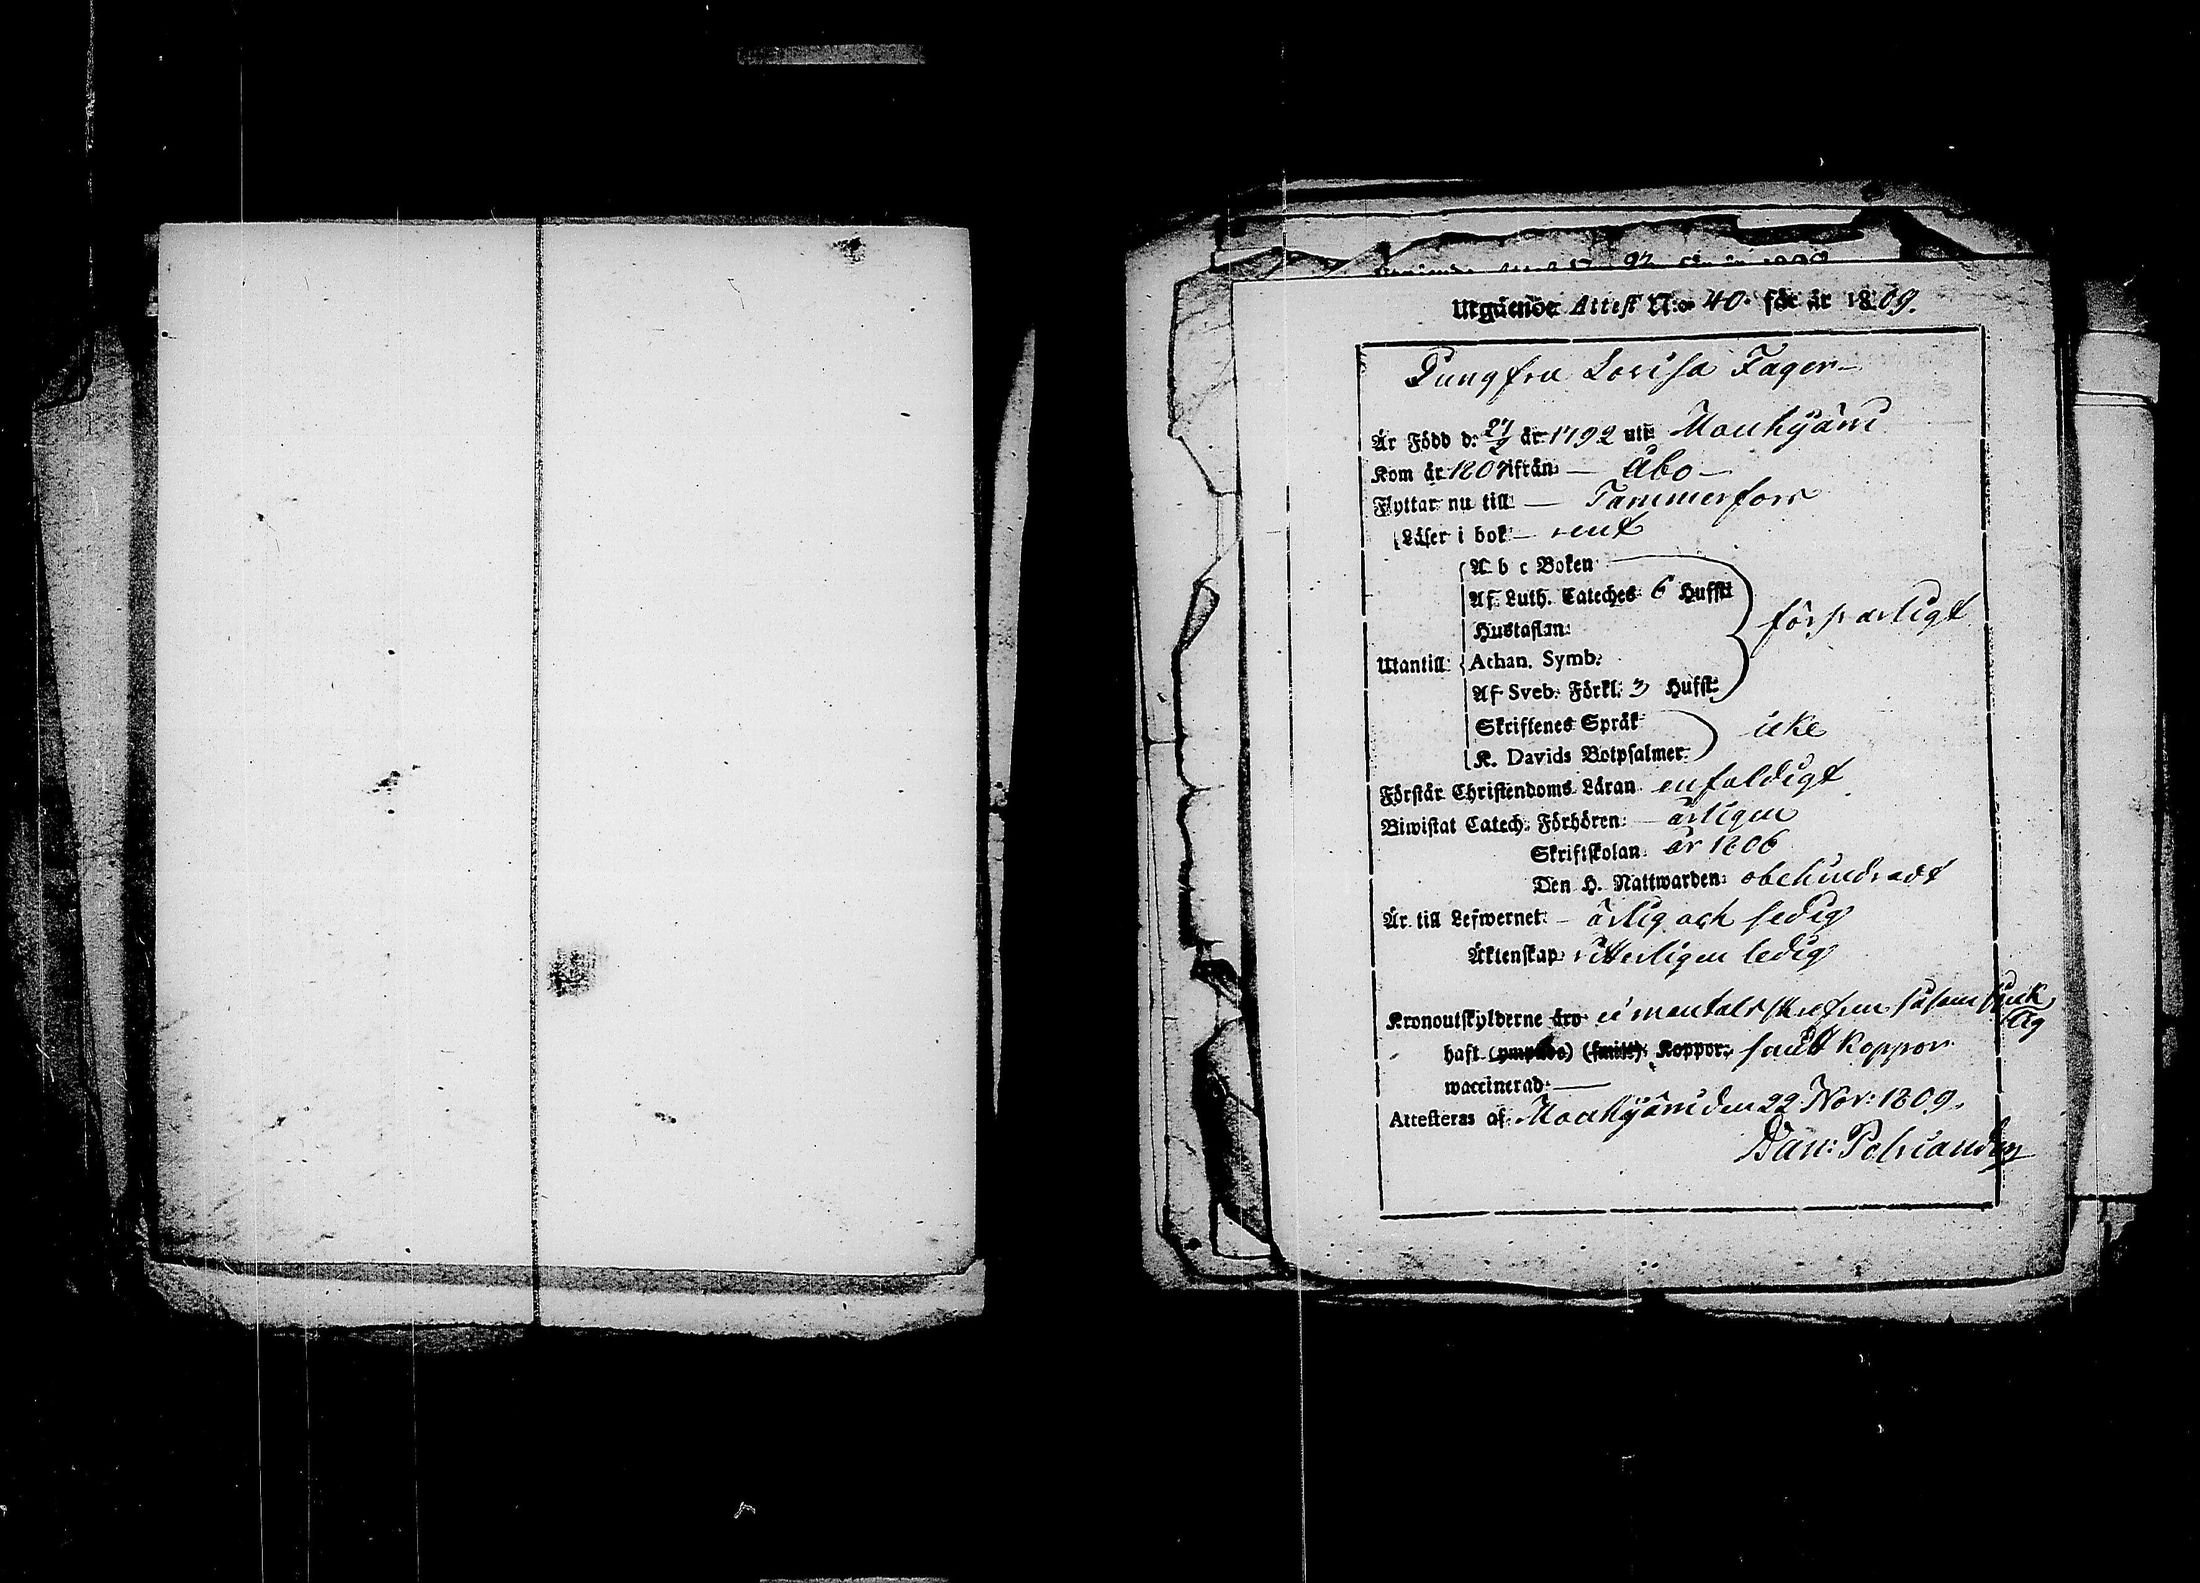 Utgående Attest N:o 40. för år 1809.
Jungfru Lovisa Fager
Är Född d: 27/2 år 1792 uti Mouhijärvi
Kom år 1807 ifrån: Åbo
Flyttar nu till Tammerfors
Läser i bok rent
A b c Boken
Af Luth. Cateches 6 Hufst:
Hustaflan: försvarligt
Utantill: Athan. Symb:
Af Sveb. Förkl. 3 Hufst:
Skriftenes Språk
icke
K. Davids Botpsalmer:
Förstår Christendoms Läran enfaldigt
Biwistat Catech: Förhören: årligen
Skriftskolan år 1806
Den H. Nattwarden: obehindradt
Är till Lefwernet: ärlig och sedig
Äktenskap: vitterligen ledig
Kronoutskylderne äro ei mantalsskrefven såsom siuk
lig
haft (ympade) (smitt) Koppor: smitt koppor
waccinerad:
Attesteras af: Mouhijärvi den 22 Nov: 1809.
Dan: Polviander